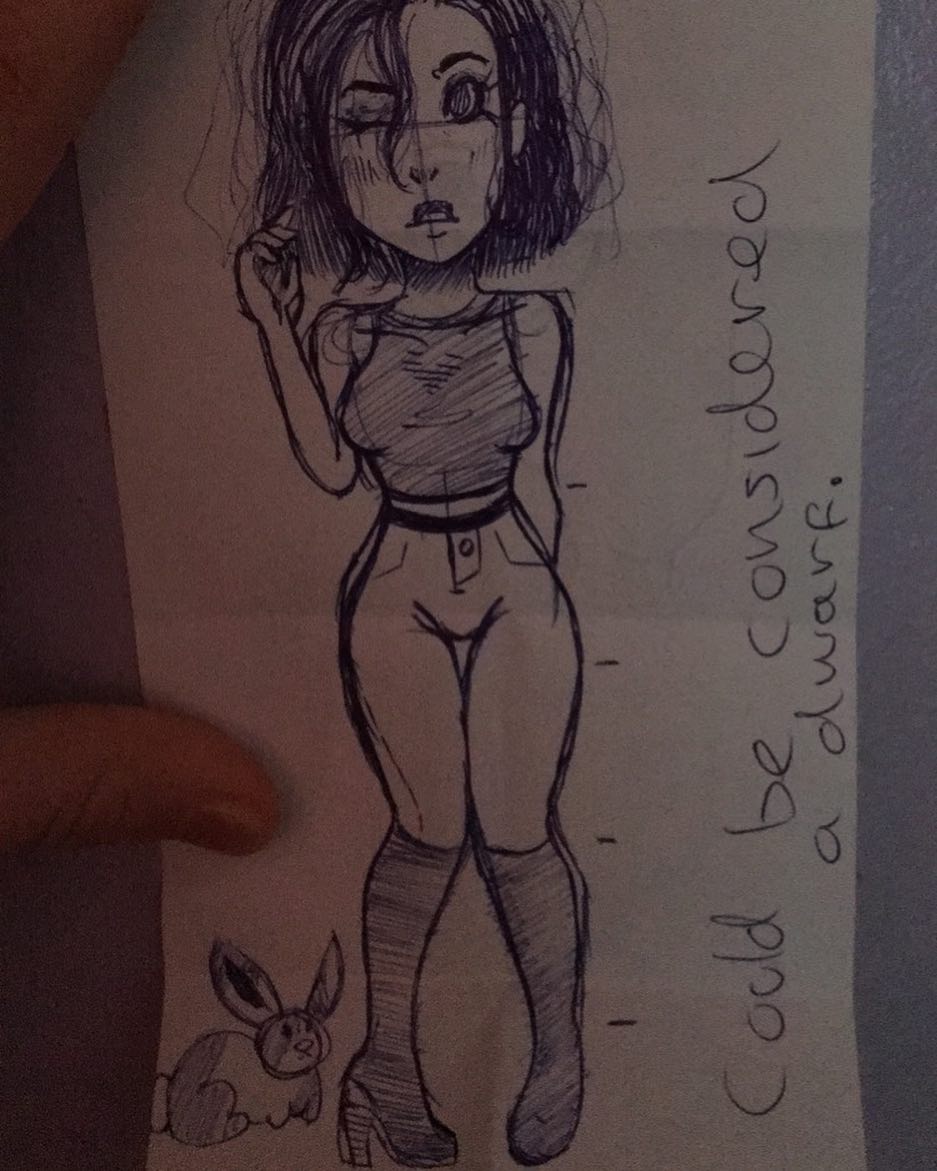 Could be considered
a dwarf.